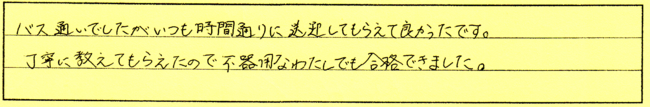 バス通いでしたがいつも時間通りに送迎してもらえて良かったです。
丁寧に教えてもらえたので不器用なわたしでも合格できました。